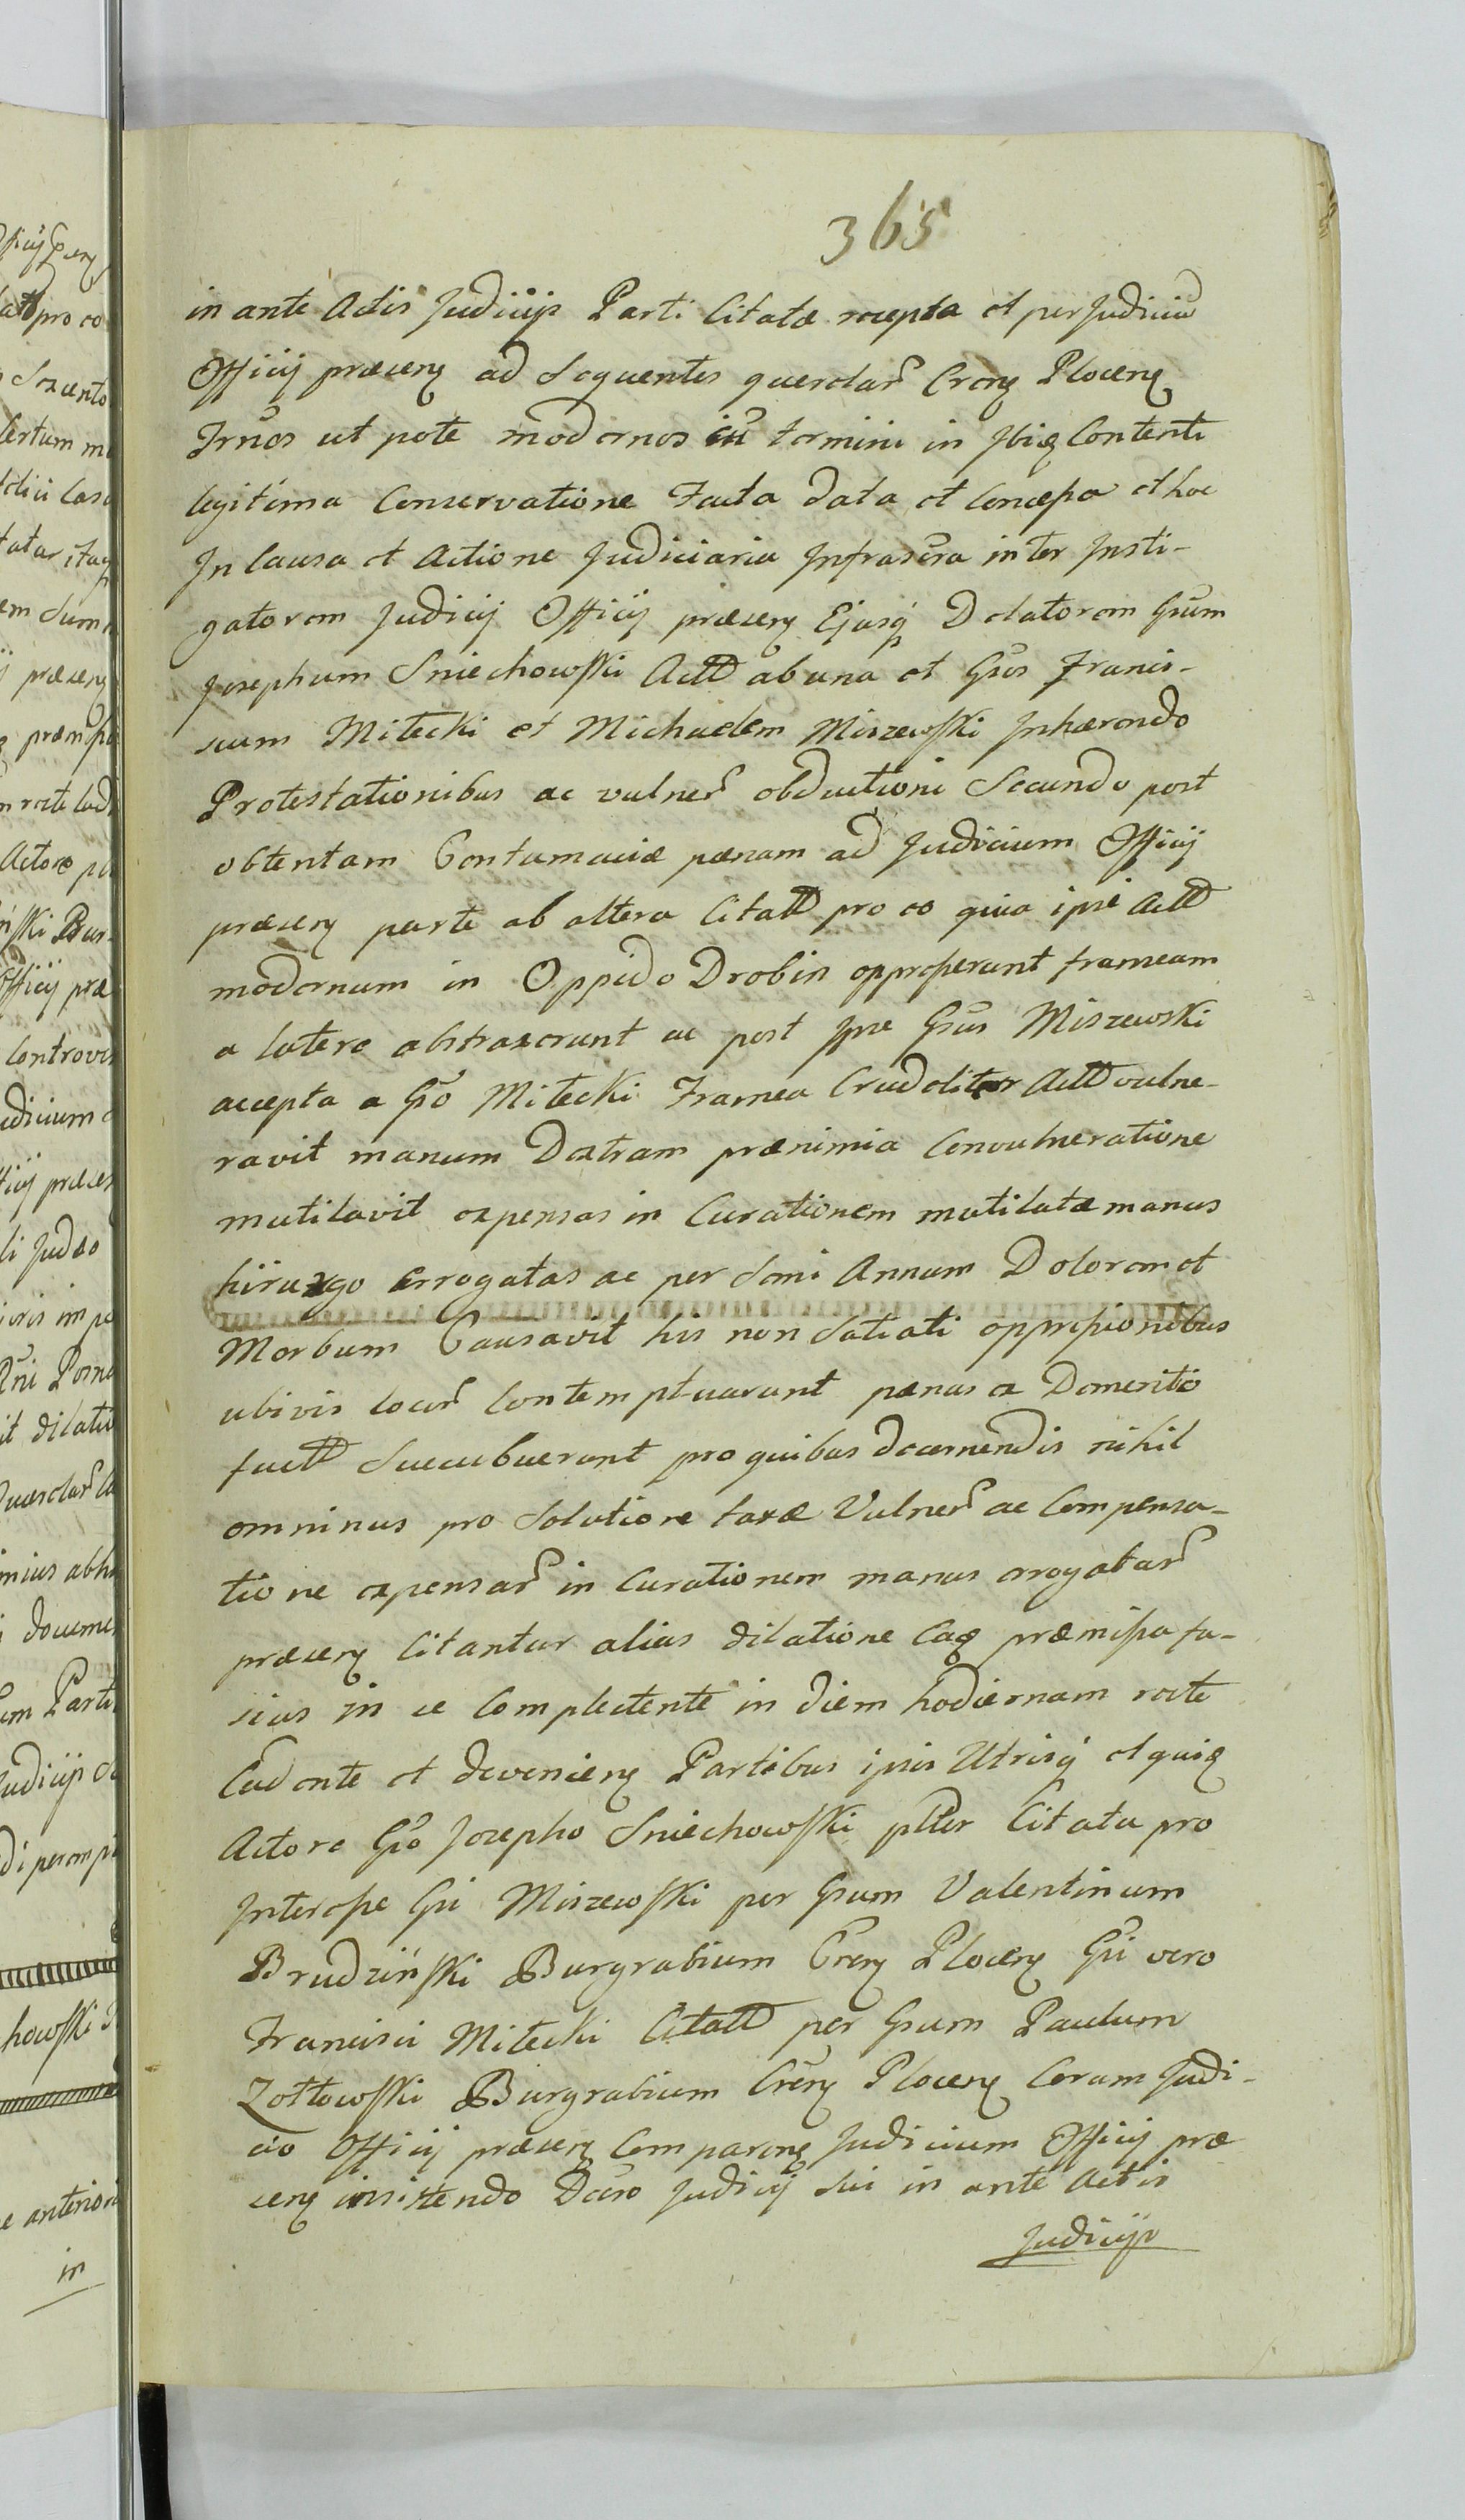 365
in ante Actis Judicijs Parti Citatæ recepta et per Judiciu
Officij præsens ad Sequentes querelar Crens Plocens
Frnos ut pote modernos cu termini in Ibiq Contenti
legitima Conservatione Facta data et Concessa et hoc
In Causa et Actione Judiciaria Infrascra inter Insti-
gatorem Judicij Officij præsens Ejusq Delatorem Gsum
Josephum Sniechowski Actt ab una et Gsos Francis-
cum Mitecki et Michaelem Miszewski Inhærendo
Protestationibus ac vulner obductioni Secundo post
obtentam Contumaciæ pænam ad Judicium Officij
præsens parte ab altera Citatt pro eo quia ipsi Actt
modernum in Oppido Drobin oppresserunt frameam
a latere abstraxerunt ac post Ipse Gsus Miszewski
accepta a Gso Mitecki Framea Crudeliter Actt vulne-
ravit manum Dextram prænimia Convulneratione
mutilavit expensas in Curationem mutilatæ manus
hirurgo errogatas ac per Semi Annum Dolorem et
Morbum Causavit his non Satiati oppressionibus
ubivis locor Contemptuarunt pænas ex Demerito
factt Succubuerunt pro quibus decernendis nihil
ominus pro Solutione taxæ Vulner ac Compensa-
tione expensar in Curationem manus errogatar
præsens Citantur alias dilatione Eaq præmissa fu-
sius in se Complectente in diem hodiernam recte
Cadente et deveniens Partibus ipsis Utrisq et quiq
Actore Gso Josepho Sniechowski plter Citata pro
Interesse Gsi Miszewski per Gsum Valentinum
Brudziński Burgrabium Crens Plocens Gsi vero
Francisci Mitecki Citatt per Gsum Paulum
Zołtowski Burgrabium Crens Plocens Coram Judi-
cio Officij præsens Comparens Judicium Officij præ
sens insistendo Decro Judicij sui in ante Actis
Judicijs